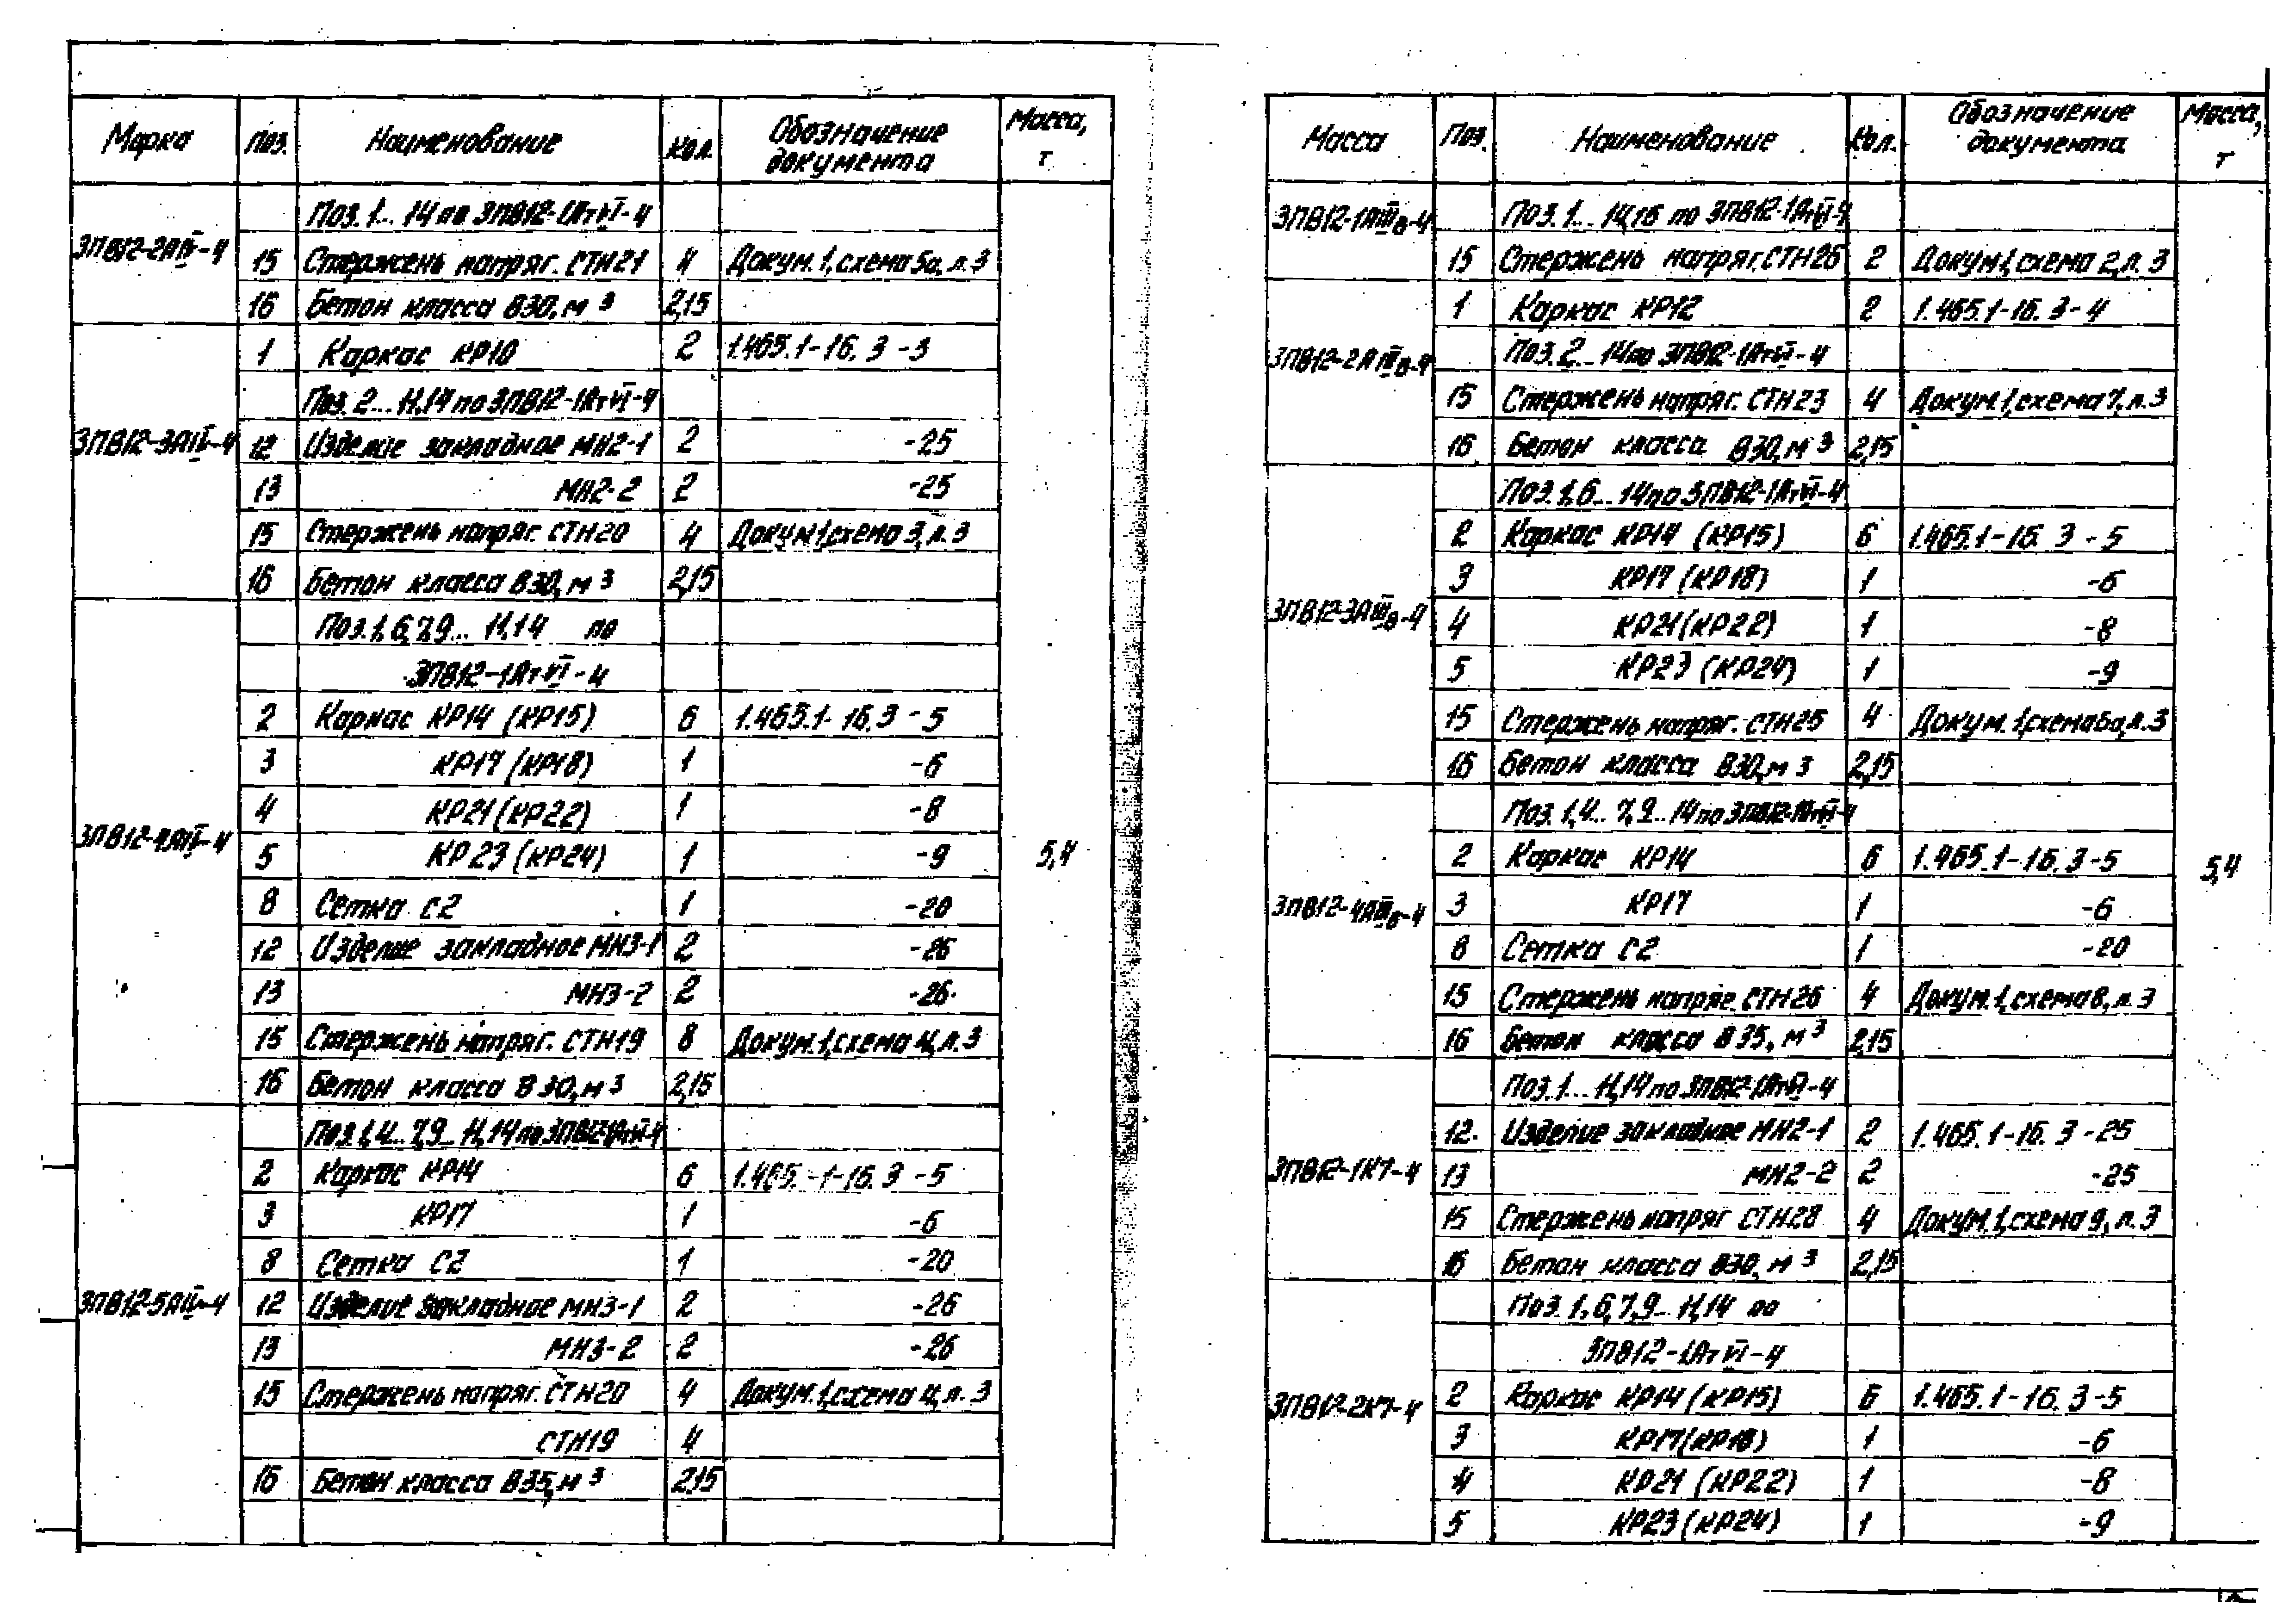 Марка Поз. Наименование Кол. Обозначение документа Масса, т
Поз. 1... 14 по 3ПВ12-1АтVI-4
3ПВ12-2АIV-4
15 Стержень напряг. СТН21 4 Докум. 1, схема 5а, л. 3
16 Бетон класса В30, м³ 2,15
1 Каркас КР10 2 1.465.1-16. 3 -3
Поз. 2... 11,14 по 3ПВ12-1АтVI-4
3ПВ12-3АIV-4 12 Изделие закладное МН2-1 2 -25
13 МН2-2 2 -25
15 Стержень напряг. СТН20 4 Докум 1, схема 3, л. 3
16 Бетон класса В30, м³ 2,15
Поз. 1, 6, 7, 9... 11,14 по
3ПВ12-1АтVI-4
2 Каркас КР14 (КР15) 6 1.465.1-16. 3 -5
3 КР17 (КР18) 1 -6
4 КР21 (КР22) 1 -8
3ПВ12-4АIV-4
5 КР23 (КР24) 1 -9 5,4
8 Сетка С2 1 -20
12 Изделие закладное МН3-1 2 -26
13 МН3-2 2 -26
15 Стержень напряг. СТН19 8 Докум. 1, схема 4, л. 3
16 Бетон класса В30, м³ 2,15
Поз. 1, 4... 7, 9... 11,14 по 3ПВ12-1АтVI-4
2 Каркас КР14 6 1.465.-1-16. 3 -5
3 КР17 1 -6
8 Сетка С2 1 -20
3ПВ12-5АIV-4 12 Изделие закладное МН3-1 2 -26
13 МН3-2 2 -26
15 Стержень напряг. СТН20 4 Докум. 1, схема 4, л. 3
СТН19 4
16 Бетон класса В35, м³ 2,15
Масса Поз. Наименование Кол. Обозначение документа Масса, т
3ПВ12-1АIIIв-4 Поз. 1... 14,16 по 3ПВ12-1АтVI-4
15 Стержень напряг. СТН26 2 Докум 1, схема 2, л. 3
1 Каркас КР12 2 1.465.1-16. 3 -4
3ПВ12-2АIIIв-4 Поз. 2... 14 по 3ПВ12-1АтVI-4
15 Стержень напряг. СТН23 4 Докум. 1, схема 7, л. 3
16 Бетон класса В30, м³ 2,15
Поз. 1, 6... 14 по 3ПВ12-1АтVI-4
2 Каркас КР14 (КР15) 6 1.465.1-16. 3 -5
3 КР17 (КР18) 1 -6
3ПВ12-3АIIIв-4 4 КР21 (КР22) 1 -8
5 КР23 (КР24) 1 -9
15 Стержень напряг. СТН25 4 Докум. 1, схема 6а, л. 3
16 Бетон класса В30, м³ 2,15
Поз. 1, 4... 7, 9... 14 по 3ПВ12-1АтVI-4
2 Каркас КР14 6 1.465.1-16. 3 -5 5,4
3ПВ12-4АIIIв-4 3 КР17 1 -6
8 Сетка С2 1 -20
15 Стержень напряг. СТН26 4 Докум. 1, схема 8, л. 3
16 Бетон класса В35, м³ 2,15
Поз. 1... 11,14 по 3ПВ12-1АтVI-4
12. Изделие закладное МН2-1 2 1.465.1-16. 3 -25
3ПВ12-1К7-4 13 МН2-2 2 -25
15 Стержень напряг СТН28 4 Докум. 1, схема 9, л. 3
16 Бетон класса В30, м³ 2,15
Поз. 1, 6, 7, 9... 11,14 по
3ПВ12-1АтVI-4
3ПВ12-2К7-4 2 Каркас КР14 (КР15) 6 1.465.1-16. 3 -5
3 КР17 (КР18) 1 -6
4 КР21 (КР22) 1 -8
5 КР23 (КР24) 1 -9